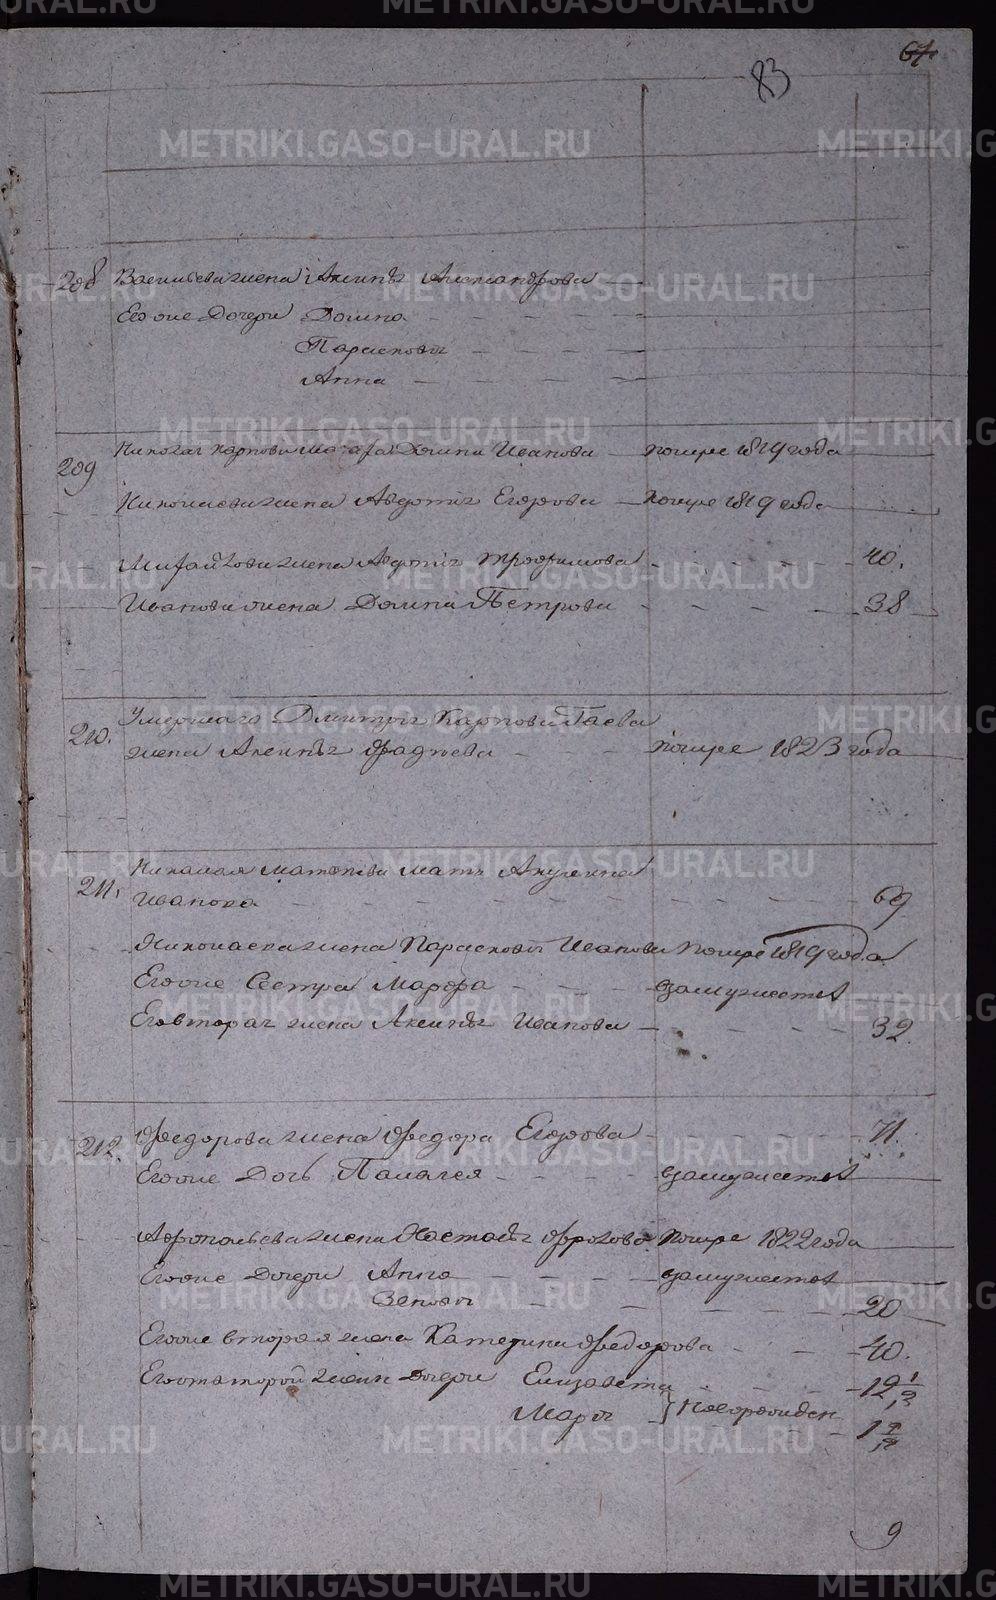 67
83
208 Васильева жена Аксинья Александрова
Его же дочери Домна
Парасковья
Анна
209 Николая Карпова Домна Иванова помре 1819 года
Николаева жена Авдотья Егорова помре 1819 года
Михайлова жена Авдотья Трофимова 40.
Иванова жена Домна Петрова 38
210. Умершаго Дмитрия Карпова Гаева
жена Аксинья Фадѣева помре 1823 года
211. Николая Матвѣева мать Акулина
Иванова 69
Николаева жена Парасковья Иванова помре 1819 года
Его же сестра Марфа взамужестве
Его вторая жена Аксинья Иванова 32
212. Федорова жена Федора Егорова 71.
Его же дочь Палагея взамужестве
Жена Настасья Фролова помре 1822 года
Его же дочери Анна взамужестве
Зеновья 20
Его же вторая жена Катерина Федорова 40.
Его же второй жены дочери Елизавета 12 1/2
Марья новорожден 1 1/2
9
METRIKI.GASO-URAL.RU